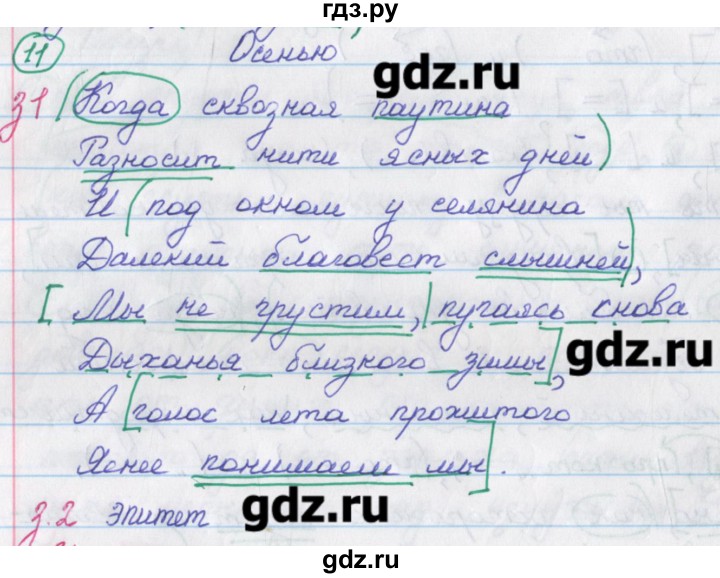 гдз.ру
11 Осенью
gdz.ru
з1 (Когда сквозная паутина
Разносит нити ясных дней)
И (под окном у селянина
Далекий благовест слышней),
[Мы не грустим,| пугаясь снова
Дыханья близкого зимы],
gdz.ru
А [голос лета прожитого
Яснее понимаем мы].
з.2 эпитет
gdz.ru
gdz.ru